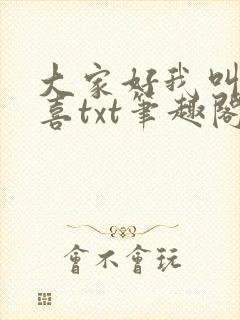 大家好我叫
喜txt筆趣閣
會不會玩